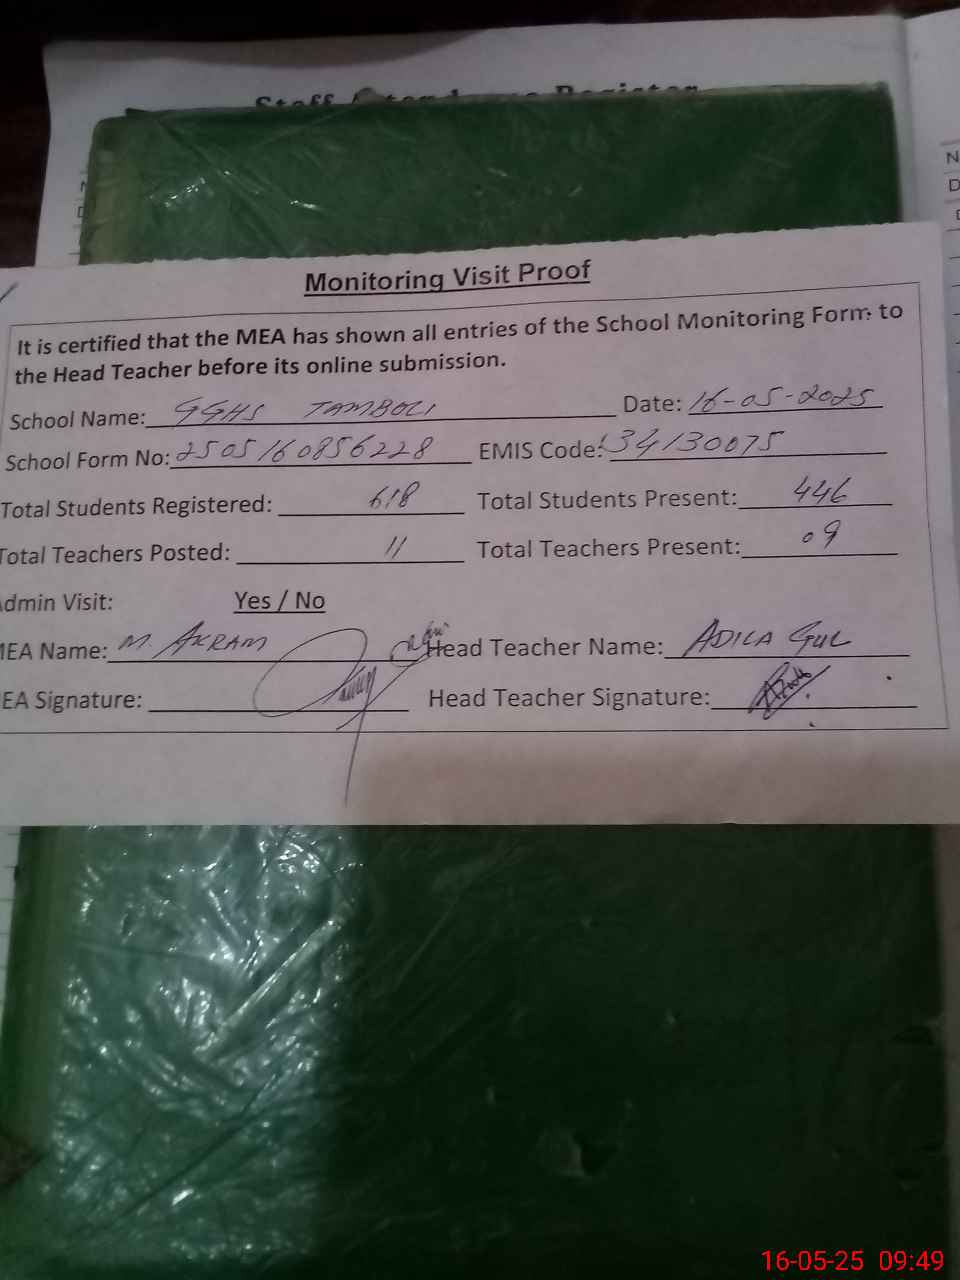 Staff Attendance Register
Monitoring Visit Proof
It is certified that the MEA has shown all entries of the School Monitoring Form to
the Head Teacher before its online submission.
School Name: GGHS TAMBOLI Date: 16-05-2025
School Form No: 2505160856228 EMIS Code: 34130075
Total Students Registered: 618 Total Students Present: 446
Total Teachers Posted: 11 Total Teachers Present: 09
Admin Visit: Yes / No
MEA Name: M. AKRAM Head Teacher Name: ADILA GUL
MEA Signature: Head Teacher Signature:
N
D
16-05-25 09:49